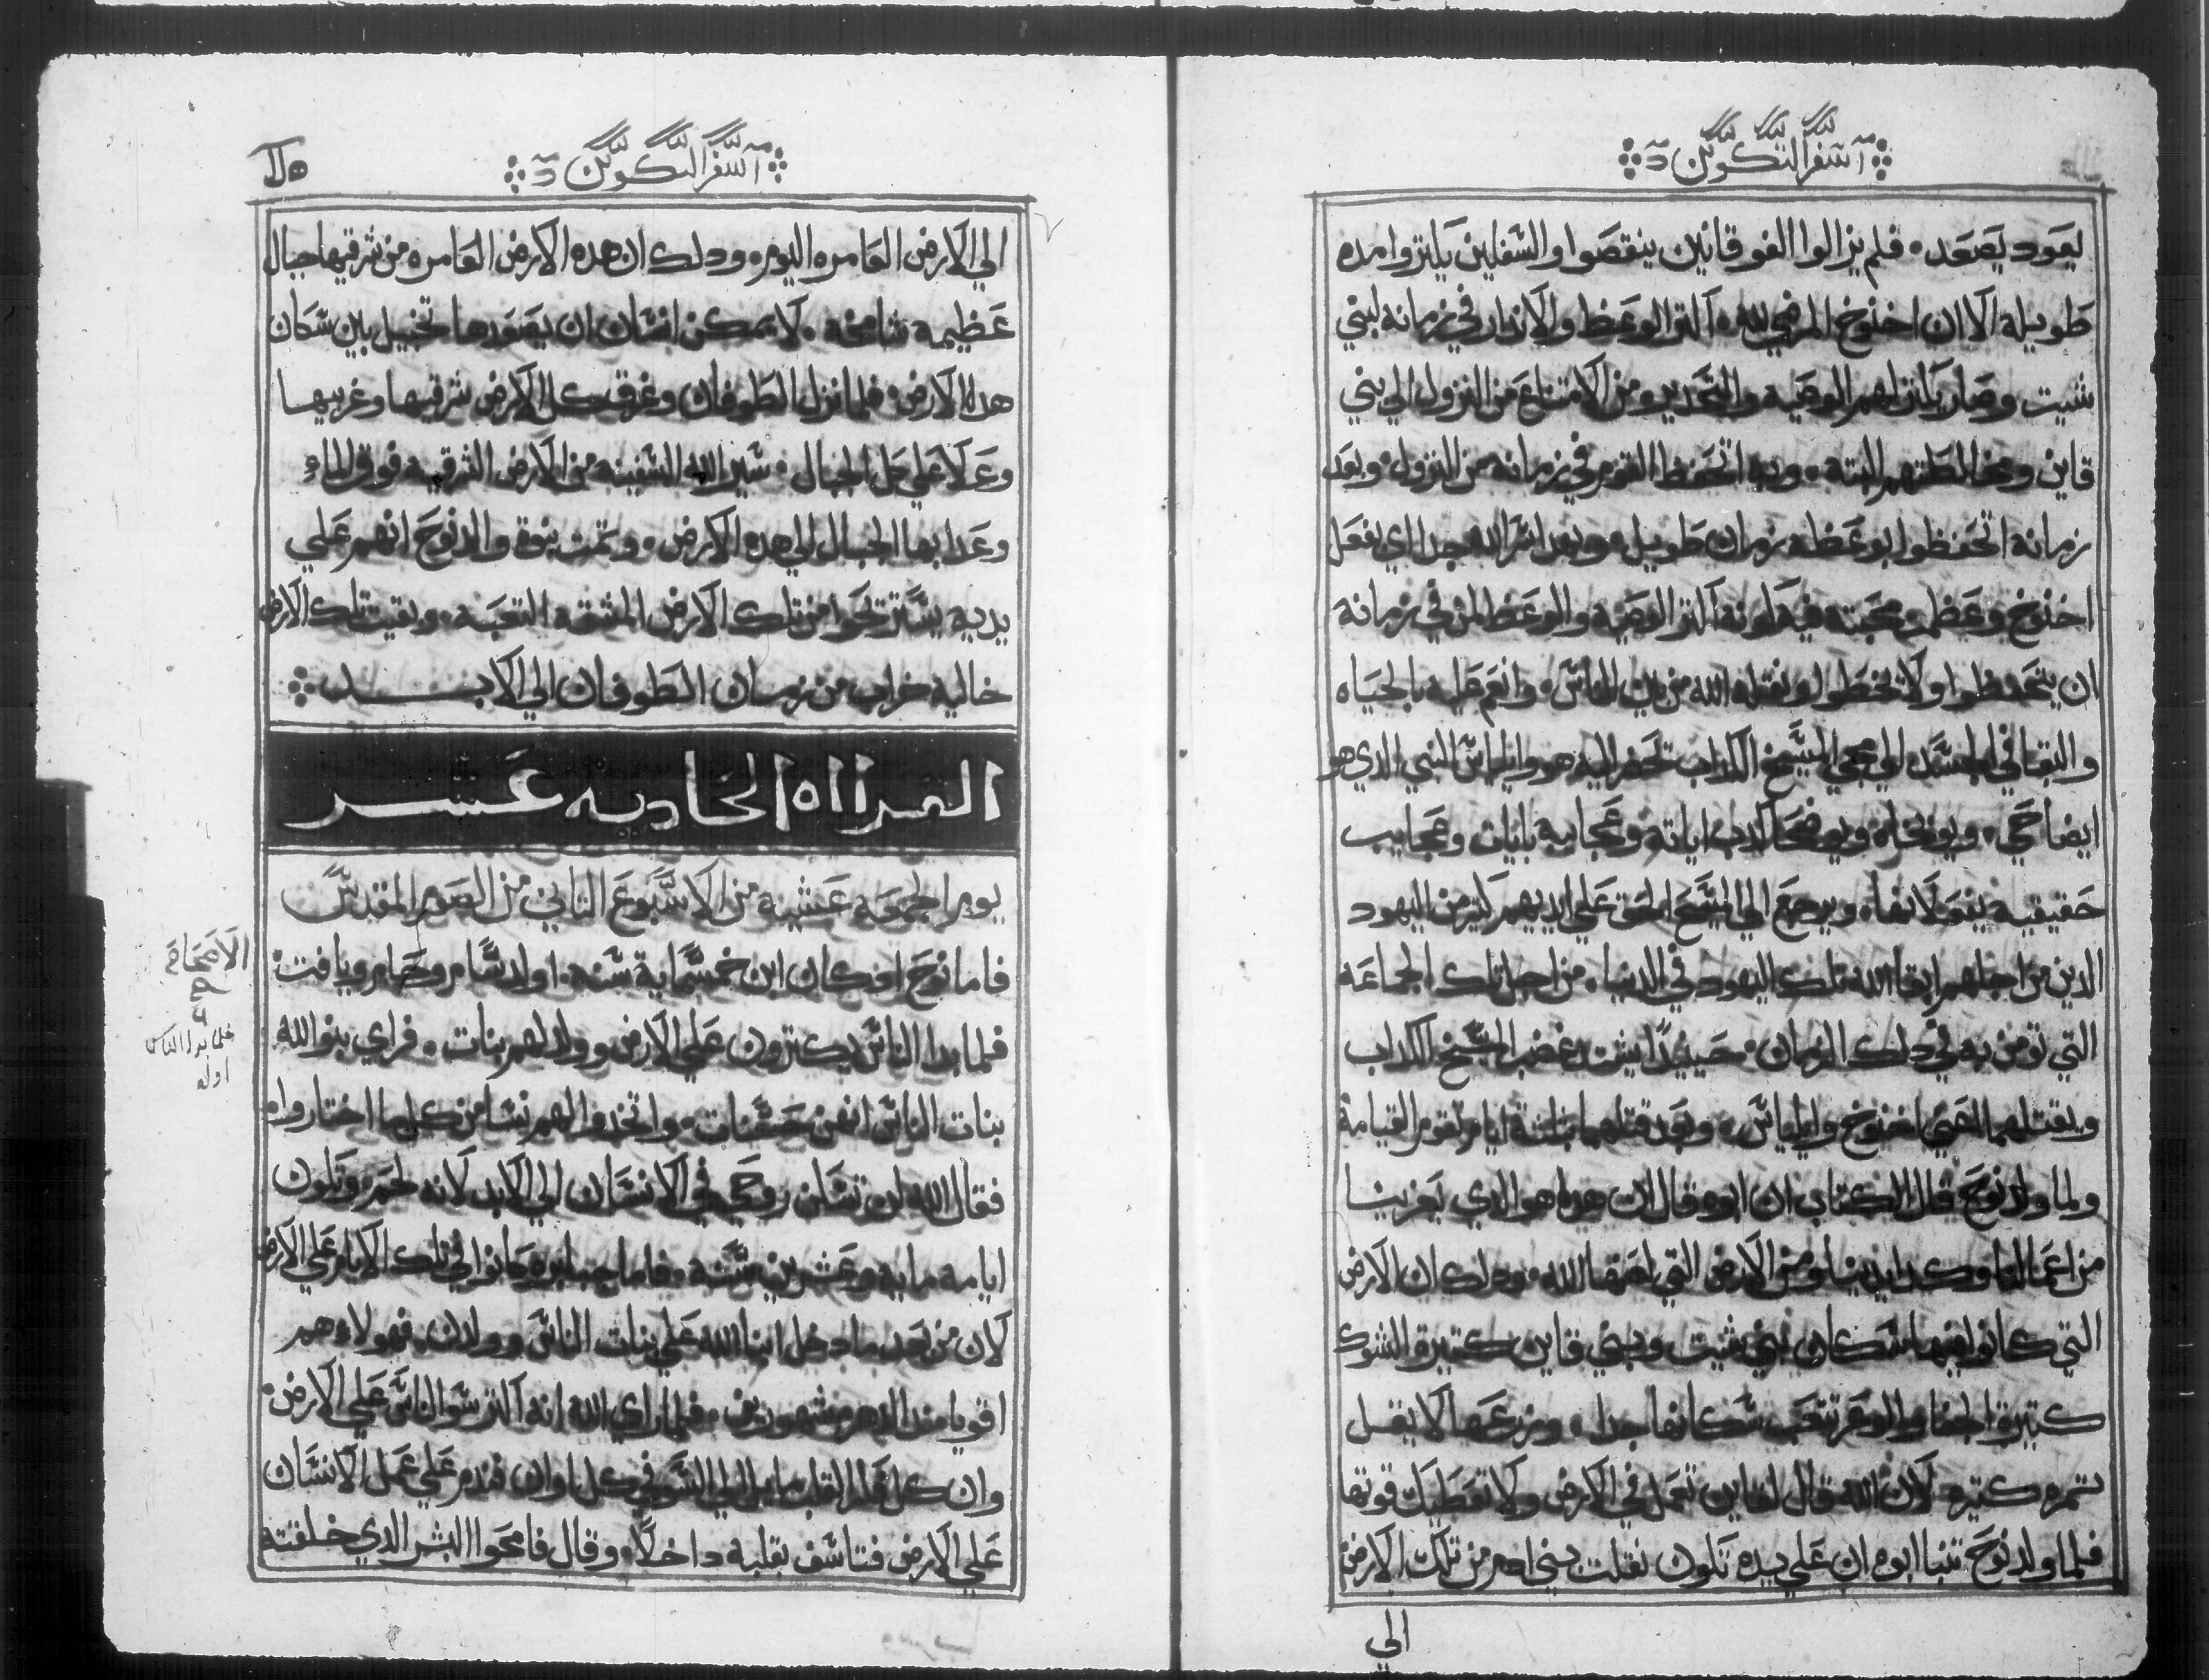 آ سفر التكوين د
يعود يصعد. فلم يزالوا الفوقانيين ينقصوا والسفليين يكتروا مده
طويله الا ان اخنوخ المرضي لله. اكتر الوعظ والانذار في زمانه لبني
شيت وصار يكتر لهم الوصيه والتحدير من الامتناع من النزول الي بني
قاين ومخالطتهم البته. وبه اتحفظ القوم في زمانه من النزول. وبعد
زمانه اتحفظوا بوعظه زمان طويل. وبعد اشر الله جدا اي بفعل
اخنوخ وعظم محبته فيه لونه اكتر الوصيه والوعظ لمن في زمانه
ان يتحفظوا ولا يخطوا ونقله الله من بين الناس. وانعم عليه بالحياه
والبقا في الجسد الي مجي المسيح الكداب تحضر اليه هو وايلياس النبي الدي هو
ايضا حي. ويوبخاه ويوضحا كدب اياته وعجايبه بايات وعجايب
حقيقيه يفعلانها. ويرجع الي المسيح الحق علي ايديهم كتير من اليهود
الدين من اجلهم ابقا الله تلك اليهود في الدنيا. من اجل تلك الجماعه
التي تومن به في دلك الزمان. حينيدا يشتد غضب المسيح الكداب
ويقتلهما اعني اخنوخ وايلياس. وبعد قتلهما بثلثة ايام تقوم القيامة
ولما ولد نوح قال الكتاب ان ابوه قال ان هدا هو الدي يعزينا
من اعمالنا وكد ايدينا ومن الارض التي لعنها الله. ودلك ان الارض
التي كانوا فيها سكان بني شيت وبني قاين كتيرة الشوك
كتيرة الجفا والوعر تتعب سكانها جدا. وزرعها الا يقل
تمره كتيره لان الله قال لقاين تعمل في الارض ولا تعطيك قوتها
فلما ولد نوح تنبا ابوه ان علي يده تكون نقلت بني ادم من تلك الارض
الي
آ سفر التكوين د
الي الارض العامره اليوم. ودلك ان هده الارض العامره من شرقيها جبال
عظيمه شامخه. لا يمكن انسان ان يصعدها تحيل بين سكان
هدا الارض. فلما نزل الطوفان وغرق كل الارض شرقيها وغربيها
وعلا علي كل الجبال. سير الله السفينه من الارض الشرقيه فوق الماء
وعدا بها الجبال الي هده الارض. وتمت نبوة والد نوح انهم علي
يديه يستريحوا من تلك الارض المشقه التعبه. وبقيت تلك الارض
خاليه خراب من زمان الطوفان الي الابد
القرااه الحاديه عشر
يوم الجمعه عشيه من الاسبوع التاني من الصوم المقدس
فاما نوح اد كان ابن خمسماية سنه. اولد سام وحام ويافت.
فلما بدا الناس يكترون علي الارض وولد لهم بنات. فراي بنو الله
بنات الناس انهن حسنات. واتخدوا لهم نسا من كل ما اختاروا.
فقال الله لن تسكن روحي في الانسان الي الابد لانه لحم. وتكون
ايامه مايه وعشرين سنه. فاما جبابره كانوا في تلك الايام علي الارض
لان من بعد ما دخل ابنا الله علي بنات الناس وولدن. فهولاء هم
اقويا مند الدهر مشهورين. فلما راي الله انه اكتر شو الناس علي الارض.
وان كل فكر القلب مايل الي الشو في كل اوان فندم علي عمل الانسان
علي الارض فتاسف بقلبه داخلاً. وقال فامحوا البشر الدي خلقته
الاصحاح
فلما بدا الناس
اوله